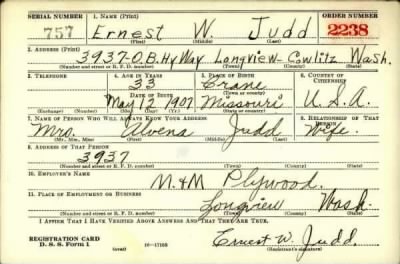 SERIAL NUMBER 1. NAME (Print) ORDER NUMBER
757 Ernest W. Judd 2238
(First) (Middle) (Last)
2. ADDRESS (Print)
3937-O.B. HyWay Longview-Cowlitz Wash.
(Number and street or R. F. D. number) (Town) (County) (State)
3. TELEPHONE 4. AGE IN YEARS 5. PLACE OF BIRTH 6. COUNTRY OF CITIZENSHIP
33 Crane
(Town or county)
DATE OF BIRTH
May 12 1907 Missouri U.S.A.
(Exchange) (Number) (Mo.) (Day) (Yr.) (State or country)
7. NAME OF PERSON WHO WILL ALWAYS KNOW YOUR ADDRESS 8. RELATIONSHIP OF THAT PERSON
Mrs. Alvena Judd Wife.
(Mr., Mrs., Miss) (First) (Middle) (Last)
9. ADDRESS OF THAT PERSON
3937
(Number and street or R. F. D. number) (Town) (County) (State)
10. EMPLOYER'S NAME
M. & M Plywood.
11. PLACE OF EMPLOYMENT OR BUSINESS
Longview Wash.
(Number and street or R. F. D. number) (Town) (County) (State)
I AFFIRM THAT I HAVE VERIFIED ABOVE ANSWERS AND THAT THEY ARE TRUE.
REGISTRATION CARD
D. S. S. Form 1 (over) 16-17105 Ernest W. Judd
(Registrant's signature)